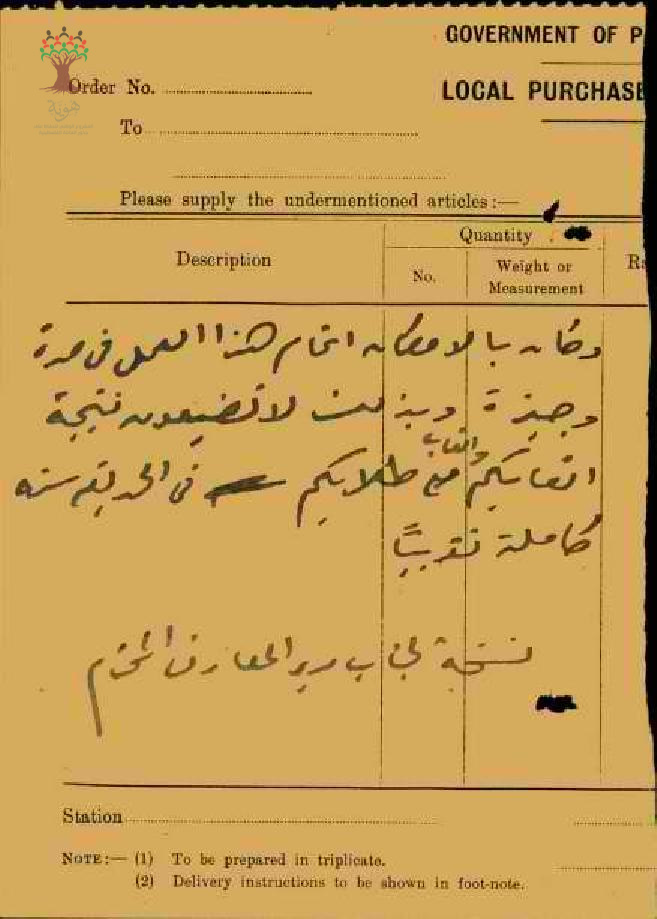 GOVERNMENT OF P
Order No.
LOCAL PURCHASE
هوية
To
Please supply the undermentioned articles:—
Description
Quantity
No.
Weight or Measurement
Ra
وكان بالامكان اتمام هذا العمل في مدة
وجيزة وبذلك لا تضيعون نتيجة
اتعابكم واتعاب طلابكم في الحديقة سنة
كاملة تقريبًا
نسخة لجناب مدير المعارف المحترم
Station
NOTE:— (1) To be prepared in triplicate.
(2) Delivery instructions to be shown in foot-note.